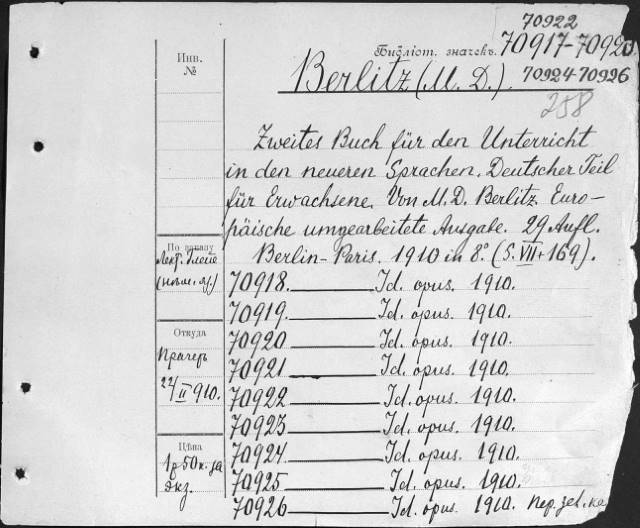 70922
Библіот. значекъ. 70917-7092
Инв.
№
Berlitz (M. D.).
70924-70926
258
Zweites Buch für den Unterricht
in den neueren Sprachen. Deutscher Teil
für Erwachsene. Von M. D. Berlitz. Euro-
päische umgearbeitete Ausgabe. 29 Aufl.
Berlin-Paris. 1910 in 8° (S. VII+169).
По заказу
Лект.
70918. Id. opus. 1910.
70919. Id. opus. 1910.
70920 Id. opus. 1910.
70921 Id. opus. 1910.
70922 Id. opus. 1910.
70923 Id. opus. 1910.
70924 Id. opus. 1910.
70925 Id. opus. 1910.
70926 Id. opus. 1910. Пер.
Откуда
22/II 910.
Цѣна
1р 50к. за
экз.